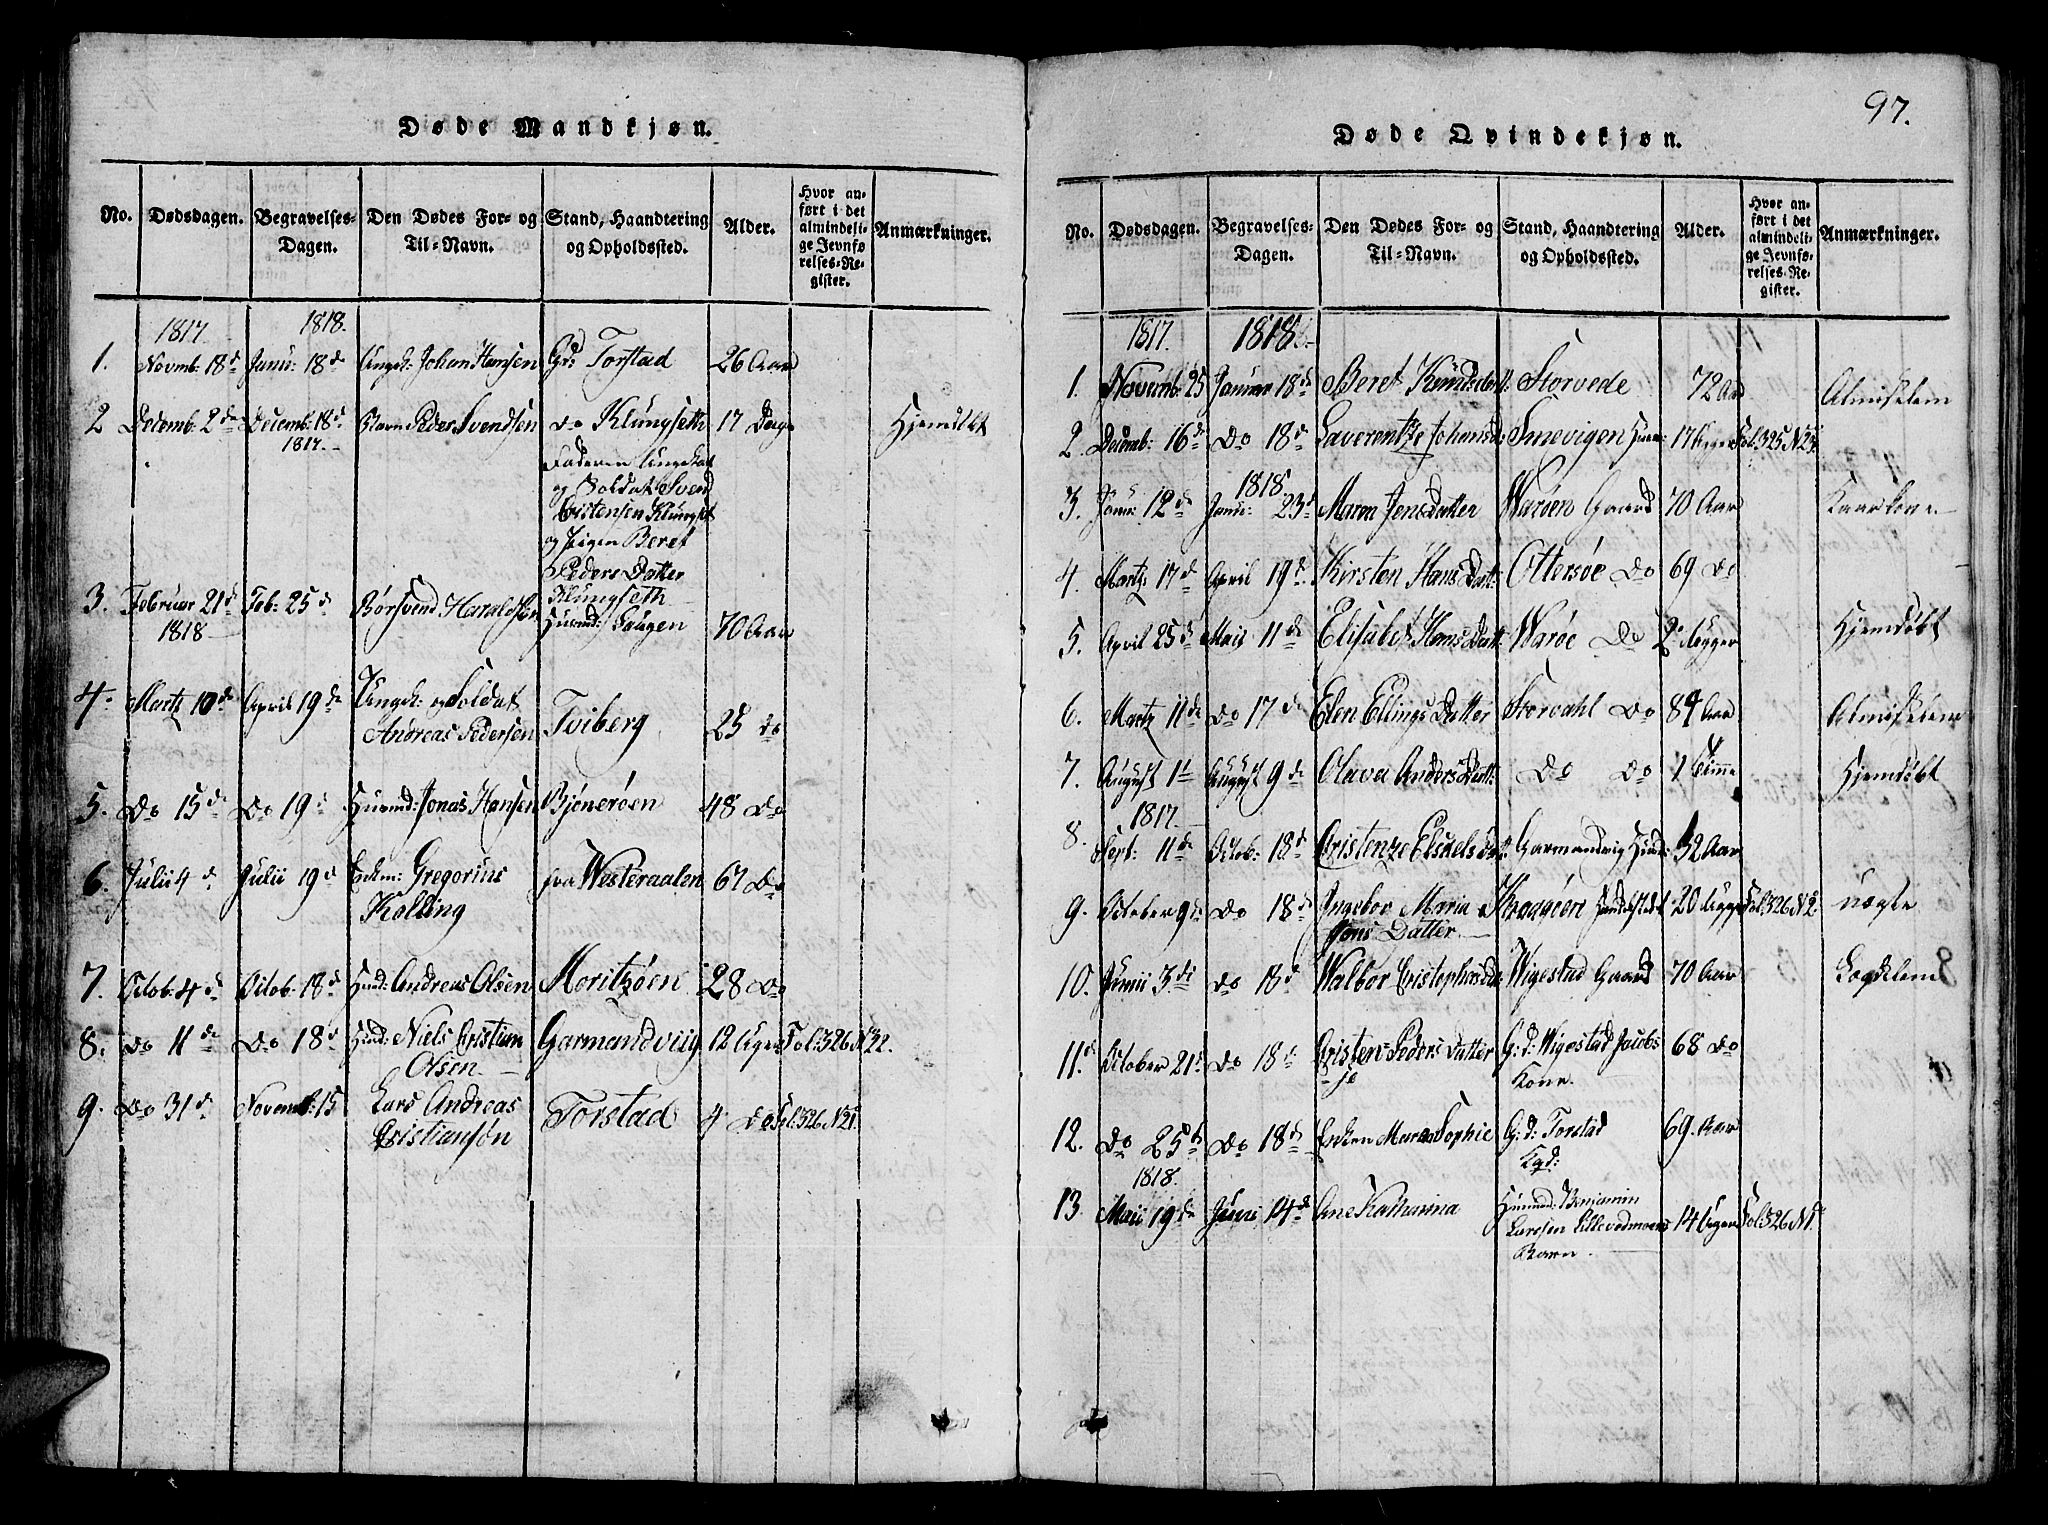 97.
Døde Mandkjøn.
No. Dødsdagen. Begravelses-Dagen. Den Dødes For- og Til-Navn. Stand, Haandtering og Opholdssted. Alder. Hvor anført i det almindelige Jevnførelses-Register. Anmærkninger.
1817. 1818.
1. Novmb: 18d Janu: 18de Ungk: Johan Hansen Gd: Torstad 26 Aar
2 Decemb: 2de Decemb: 18d Barn Peder Svendsen do Klungseth 17 Dage Hjemdøbt
1817.
Faderen Ungekal
og Soldat Svend
Cristensen Klungset
og Beret
Peders Datter
Klungseth
3. Februar 21d Feb: 25de Børsvend Haraldsen Huusmd: Laugen 70 Aar
1818
4. Martz 10de April 19de Ungk: og Soldat Tviberg 25 do
Andreas Pedersen
5. Do 15de Do 19de Huusmd: Jonas Hansen Bjønerøen 48 Do
6. Julii 4de Julii 19d Enkm: Gregorius fra Westeraalen 67 Do
Kolling
7. Octob: 4d Octob: 18d Huusd: Andreas Olsen Moritzøen 28 Do
8. Do 11de Do 18d Huusd: Niels Cristian Garmandviig 12 Uger Fol: 326 N 32.
Olsen
9. Do 31d Novemb: 15 Lars Andreas Torstad 4 Do Fol: 326 N 21.
Cristiansøn
Døde Qvindekjøn.
No. Dødsdagen. Begravelses-Dagen. Den Dødes For- og Til-Navn. Stand, Haandtering og Opholdssted. Alder. Hvor anført i det almindelige Jevnførelses-Register. Anmærkninger.
1817. 1818
1. Novemb: 25 Januar 18de Beret Knudsdatt: Storvede 72 Aar Almislem
2. Decemb: 16de Do 18d Laverentze Johansd: Smevigen 17 Uger Fol: 325 N 25.
1818
3. Janu: 12de Janu: 23d Maren Jensdatter Warøen Gaard 70 Aar Kaarkone
4. Martz 17de April 19de Kirsten Hans Datt: Ottersøe Do 69 Do
5. April 25de Maij 11de Elisabet Hans Datt: Warøe Do 2 Uger Hjemdøbt
6. Martz 11de Do 17de Elen Ellings Datter Storvahl Do 84 Aar Almislem
7. August 1t August 9de Olava Anders Datt: Do Do 1 Time Hjemdøbt
1817.
8. Sept: 11de Octob: 18d Cristenze Eliselsdatt: Garmandvig Huusd: 32 Aar
9. October 9de Do 18de Ingebor Maria Kraagøen 20 Uger Fol: 326 N 2. uægte
Jons Datter
10. Junii 3de do 18d Walbor Cristophersda: Wigestad Gaard 70 Aar Lægdelem
11. October 21d Do 18de Cristen- Peders Datter G: d: Wigestad Jacobs 68 Do
se Kone.
12. Do 25de Do 18de Enken Maren Sophie G: d: Torstad 69. Aar
Kgd:
1818.
13. Maii 19de Junii 14de Ane Katharina Huusmd: Benjamin 14 Uger Fol: 326 N 1.
Larssen Lillevedmoens
Barn.